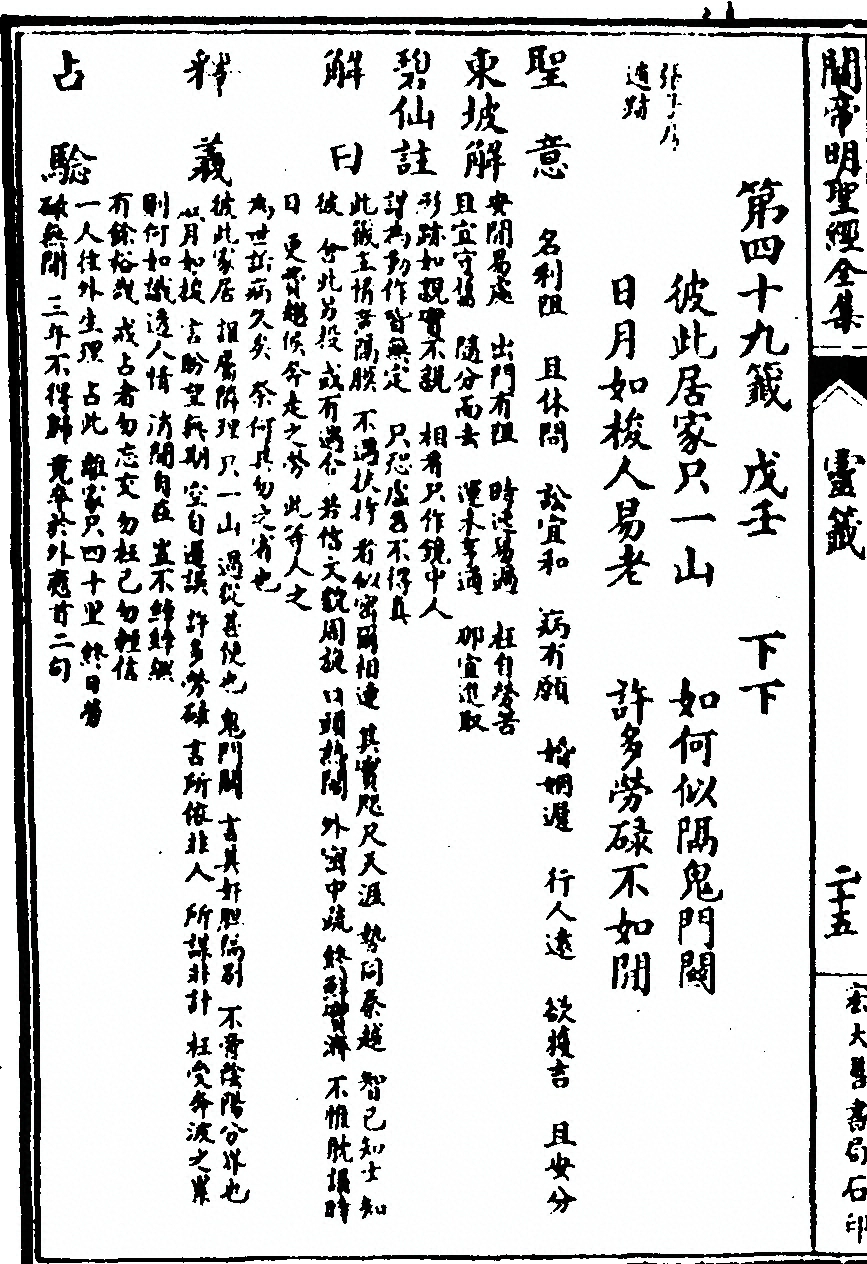 關帝明聖經全集
靈籤
二十五
宏大善書局石印
第四十九籤 戊壬 下下
彼此居家只一山 如何似隔鬼門關
日月如梭人易老 許多勞碌不如閒
張子房
遁跡
聖意 名利阻 且休問 訟宜和 病有願 婚姻遲 行人遠 欲獲吉 且安分
東坡解 安閒易處 出門有阻 時迍易過 枉自勞苦
且宜守舊 隨分而去 運未亨通 那宜進取
碧仙註 形跡如親實不親 相看只作鏡中人
謀為動作皆無定 只恐虛名不得真
解曰 此籤主情苦隔膜 不遇扶持 看似密爾相連 其實咫尺天涯 勢同秦越 智己知士 知
彼 舍此另投 或有遇合 若恃文貌周旋 口頭熱鬧 外密中疏 終鮮實濟 不惟耽誤時
日 更費趨候奔走之勞 此等人之
為世詬病久矣 奈何其勿之省也
釋義 彼此家居 誼屬鄰理 只一山 過從甚便也 鬼門關 言其奸胆 不啻陰陽分界也
日月如梭 言盼望無期 空自遷誤 許多勞碌 言所依非人 所謀非計 枉受奔波之累
則何如識透人情 消閒自在 豈不綽綽然
有餘裕哉 戒占者勿忘交 勿枉己 勿輕信
占驗 一人往外生理 占此 離家只四十里 終日勞
碌無閒 三年不得歸 竟卒於外 應首二句